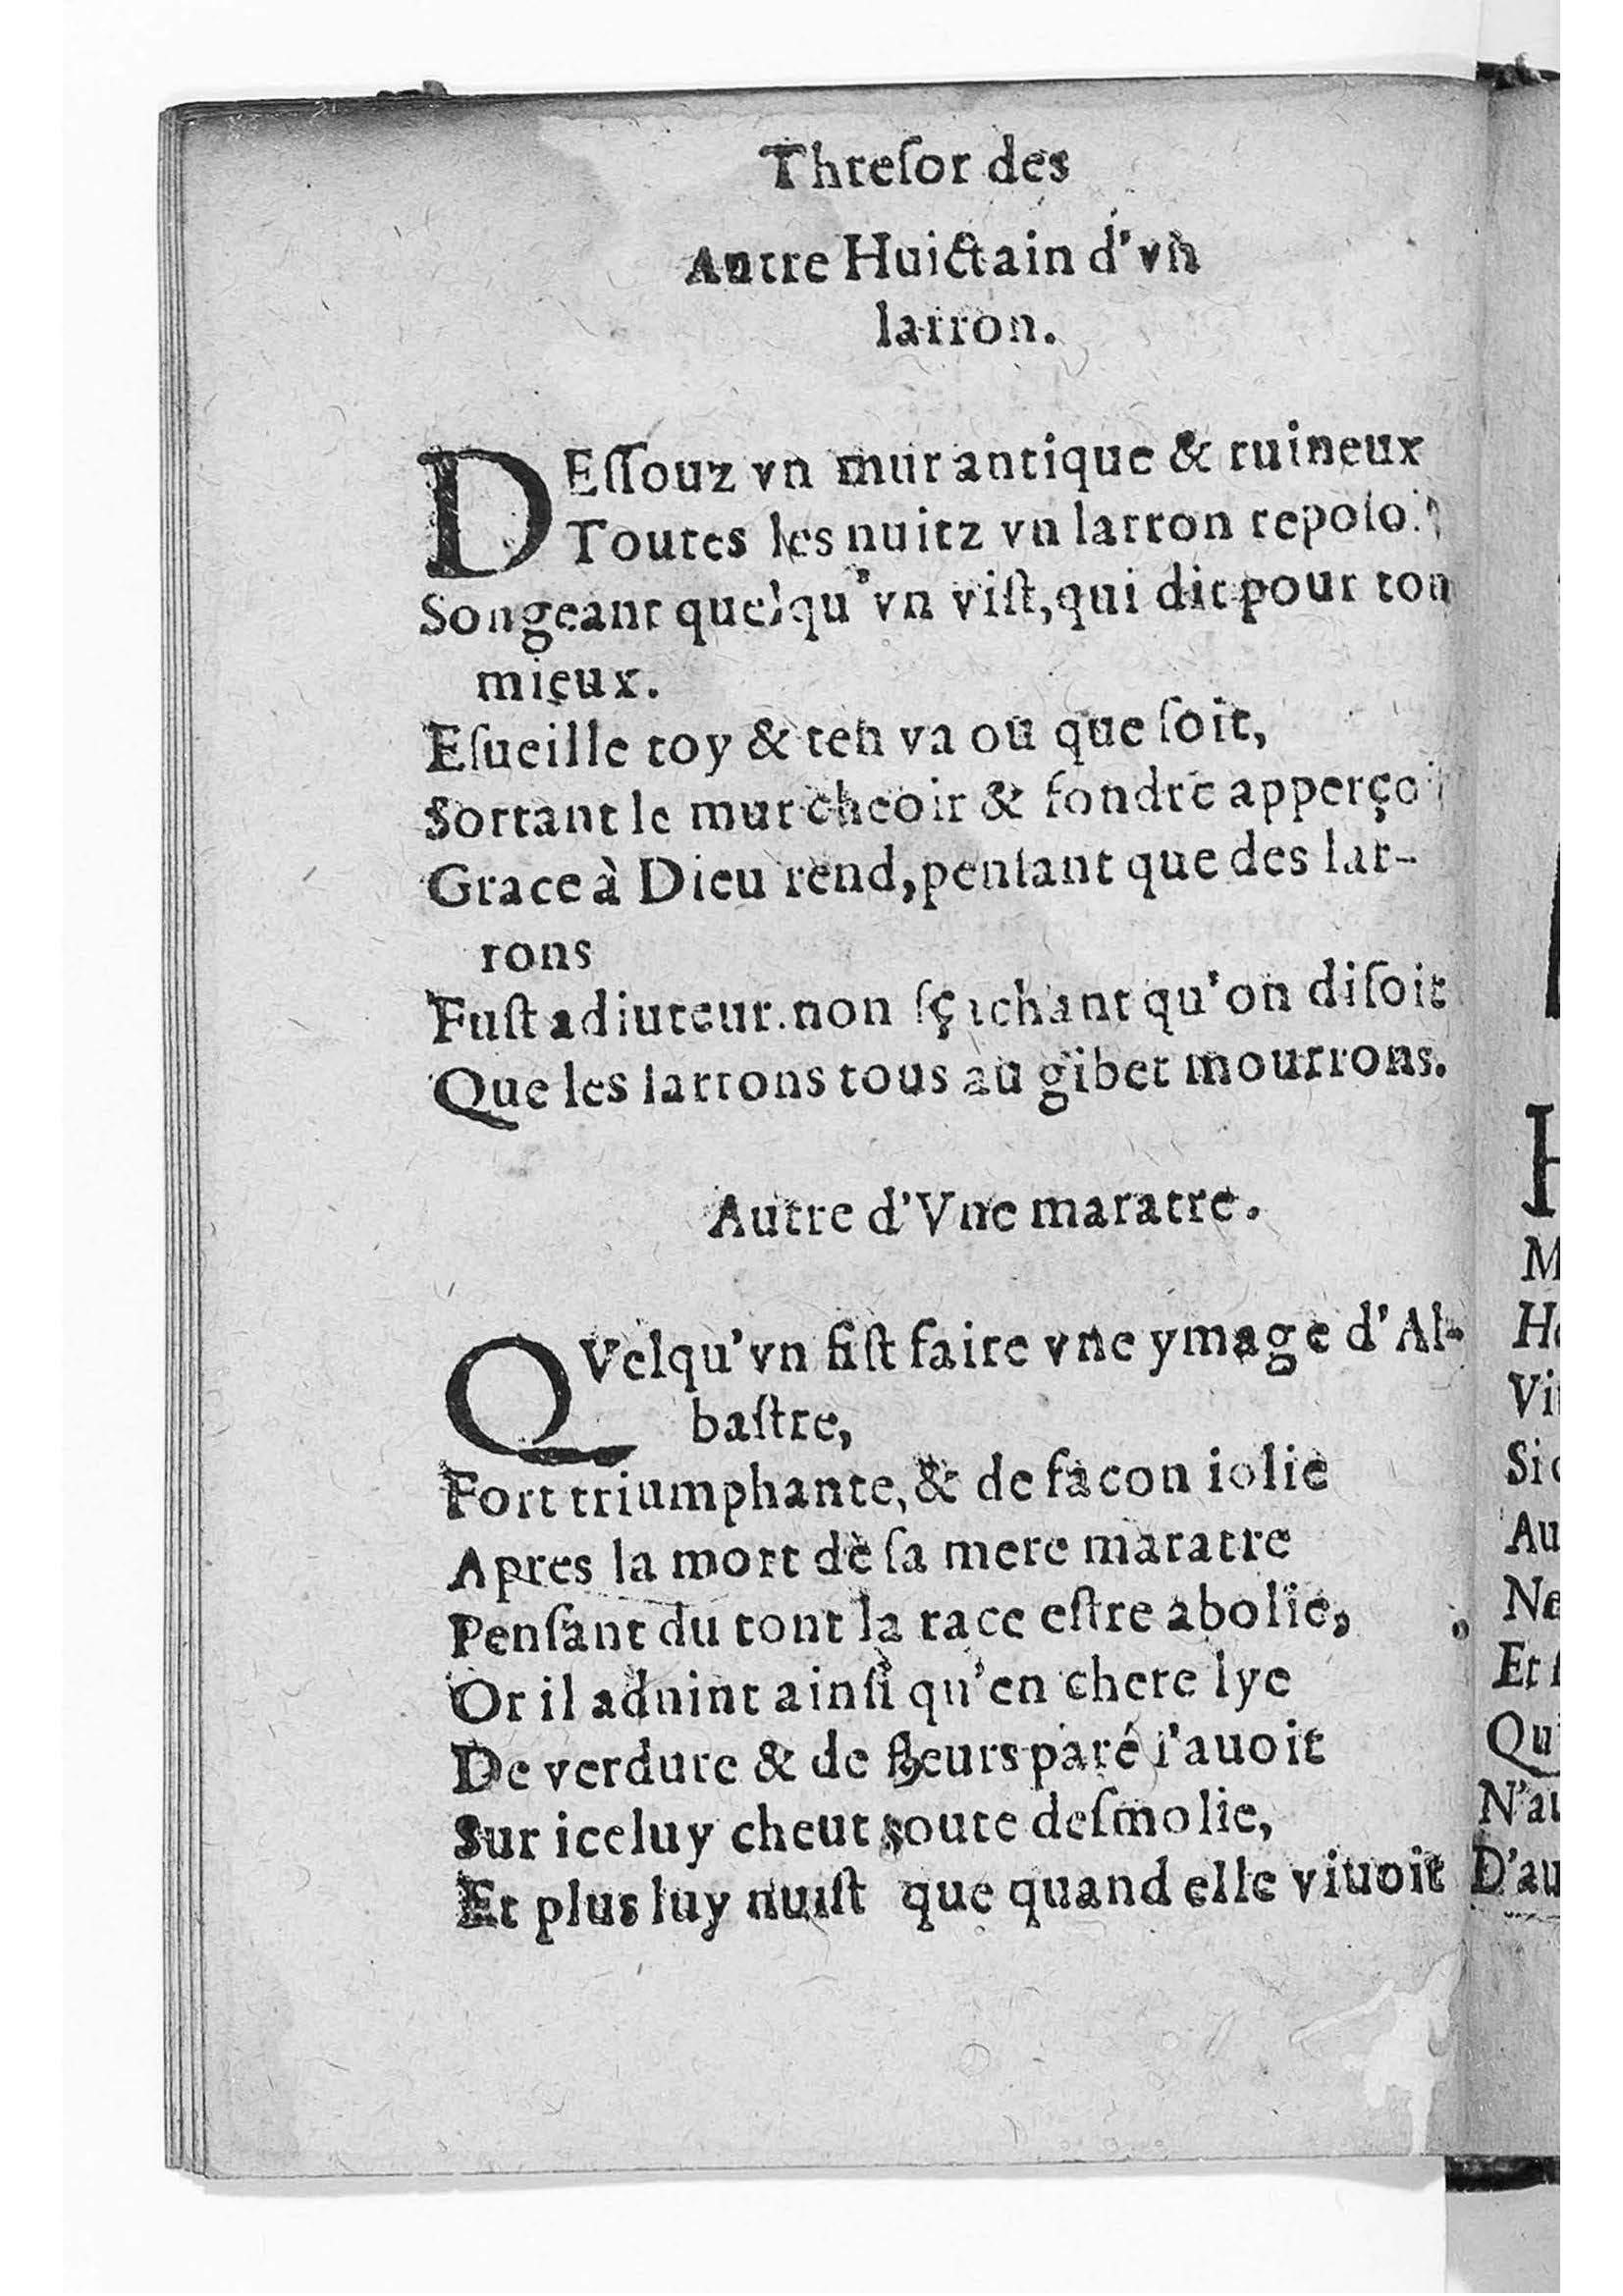 Threſor des
Autre Huictain d'vn
larron.
DEſſouz vn mur antique & ruineux
Toutes les nuitz vn larron
Songeant quelqu'vn viſt, qui dit pour ton
mieux.
Eſueille toy & ten va ou que ſoit,
Sortant le mur cheoir & fondre
Grace à Dieu rend, penſant que des lar-
rons
Fuſt adiuteur. non ſçachant qu'on diſoit
Que les larrons tous au gibet mourrons.
Autre d'Vne maratre.
QVelqu'vn fiſt faire vne ymage d'Al-
baſtre,
Fort triumphante, & de facon iolie
Apres la mort de ſa mere maratre
Penſant du tont la race eſtre abolie,
Or il aduint ainſi qu'en chere lye
De verdure & de fleurs paré l'auoit
Sur iceluy cheut toute deſmolie,
Et plus luy nuiſt que quand elle viuoit
H
M
Si
Au
Ne
Et
Qu'
D'au